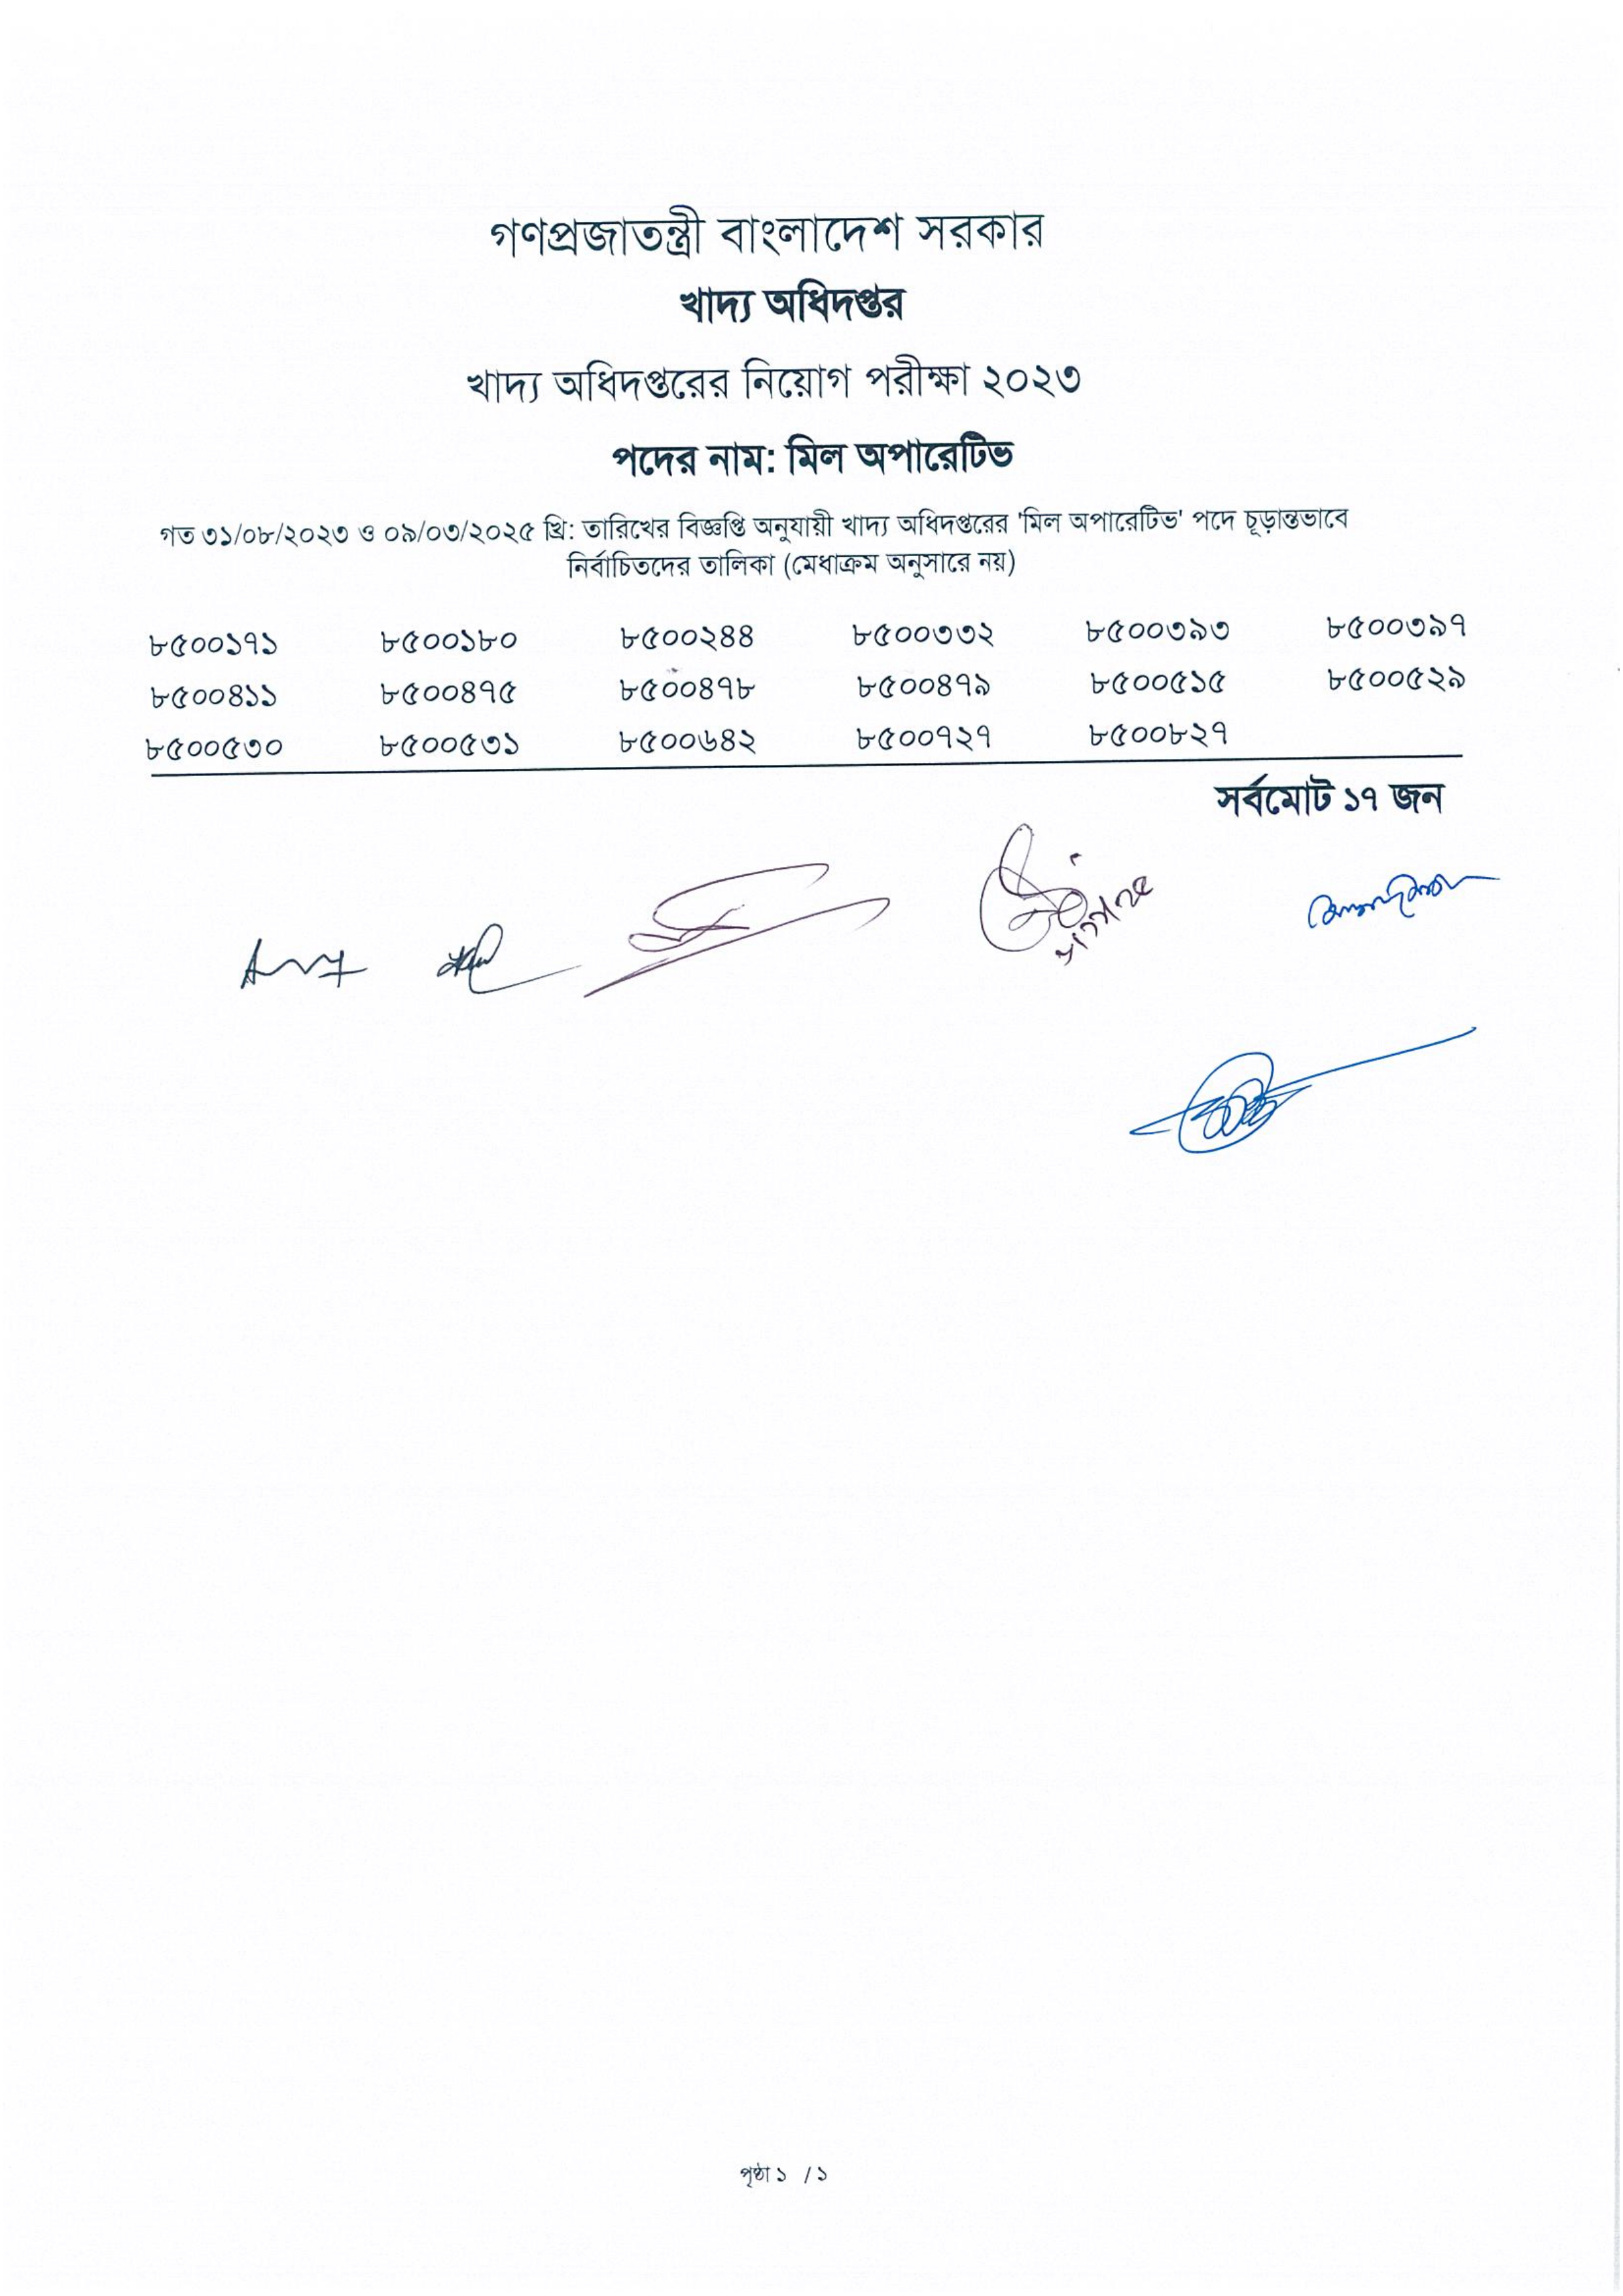 গণপ্রজাতন্ত্রী বাংলাদেশ সরকার
খাদ্য অধিদপ্তর
খাদ্য অধিদপ্তরের নিয়োগ পরীক্ষা ২০২৩
পদের নাম: মিল অপারেটিভ
গত ৩১/০৮/২০২৩ ও ০৯/০৩/২০২৫ খ্রি: তারিখের বিজ্ঞপ্তি অনুযায়ী খাদ্য অধিদপ্তরের 'মিল অপারেটিভ' পদে চূড়ান্তভাবে
নির্বাচিতদের তালিকা (মেধাক্রম অনুসারে নয়)
৮৫০০১৭১ ৮৫০০১৮০ ৮৫০০২৪৪ ৮৫০০৩৩২ ৮৫০০৩৯৩ ৮৫০০৩৯৭
৮৫০০৪১১ ৮৫০০৪৭৫ ৮৫০০৪৭৮ ৮৫০০৪৭৯ ৮৫০০৫১৫ ৮৫০০৫২৯
৮৫০০৫৩০ ৮৫০০৫৩১ ৮৫০০৬৪২ ৮৫০০৭২৭ ৮৫০০৮২৭
সর্বমোট ১৭ জন
পৃষ্ঠা ১ / ১